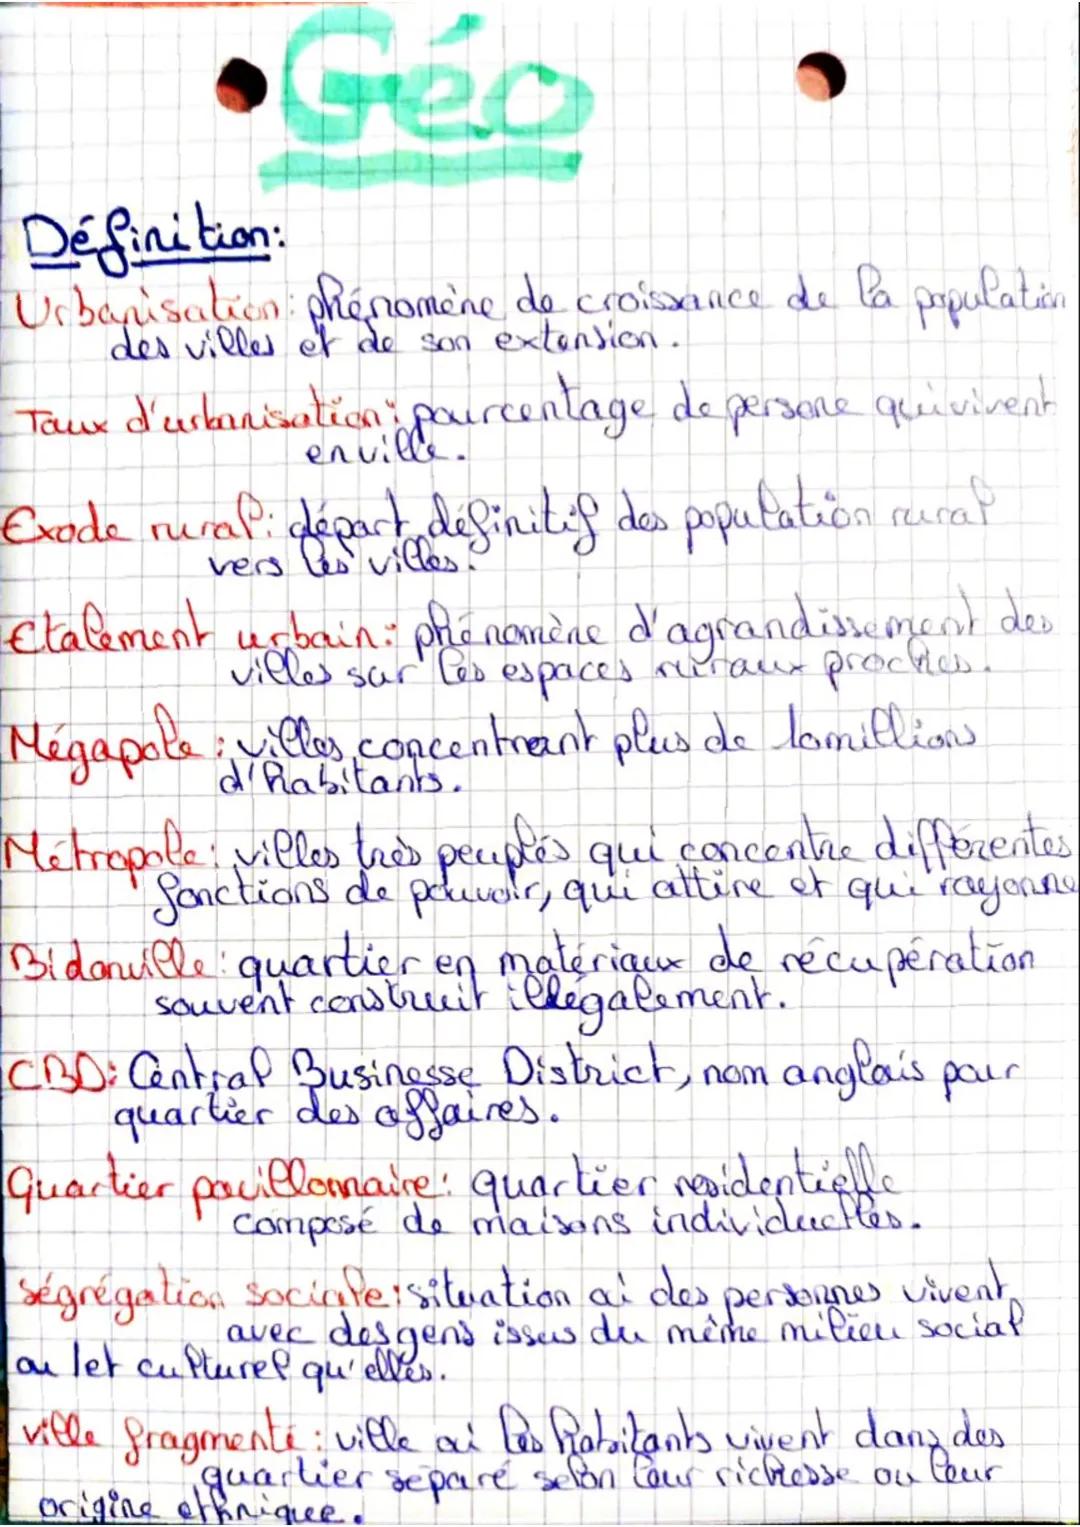 Géo
Définition:
Urbanisation: phénomène de croissance de la population
des villes et de son extension.
Taux d'urbanisation: pourcentage de persone qui vivent
en ville.
Exode rural: départ définitif des population rural
vers les villes.
Etalement urbain: phénomène d'agrandissement des
villes sur les espaces ruraux proches.
Mégapole: villes concentrant plus de 10 millions
d'habitants.
Métropole: villes très peuplés qui concentre différentes
fonctions de pouvoir, qui attire et qui rayonne
Bidonville: quartier en matériaux de récupération
souvent construit illégalement.
CBD: Central Businesse District, nom anglais pour
quartier des affaires.
Quartier pavillonnaire: quartier residentielle
composé de maisons individuelles.
ségrégation sociale: situation où des personnes vivent
avec des gens issus du même milieu social
ou /et culturel qu'elles.
ville fragmenté: ville où les habitants vivent dans des
quartier séparé selon leur richesse ou leur
origine ethnique.